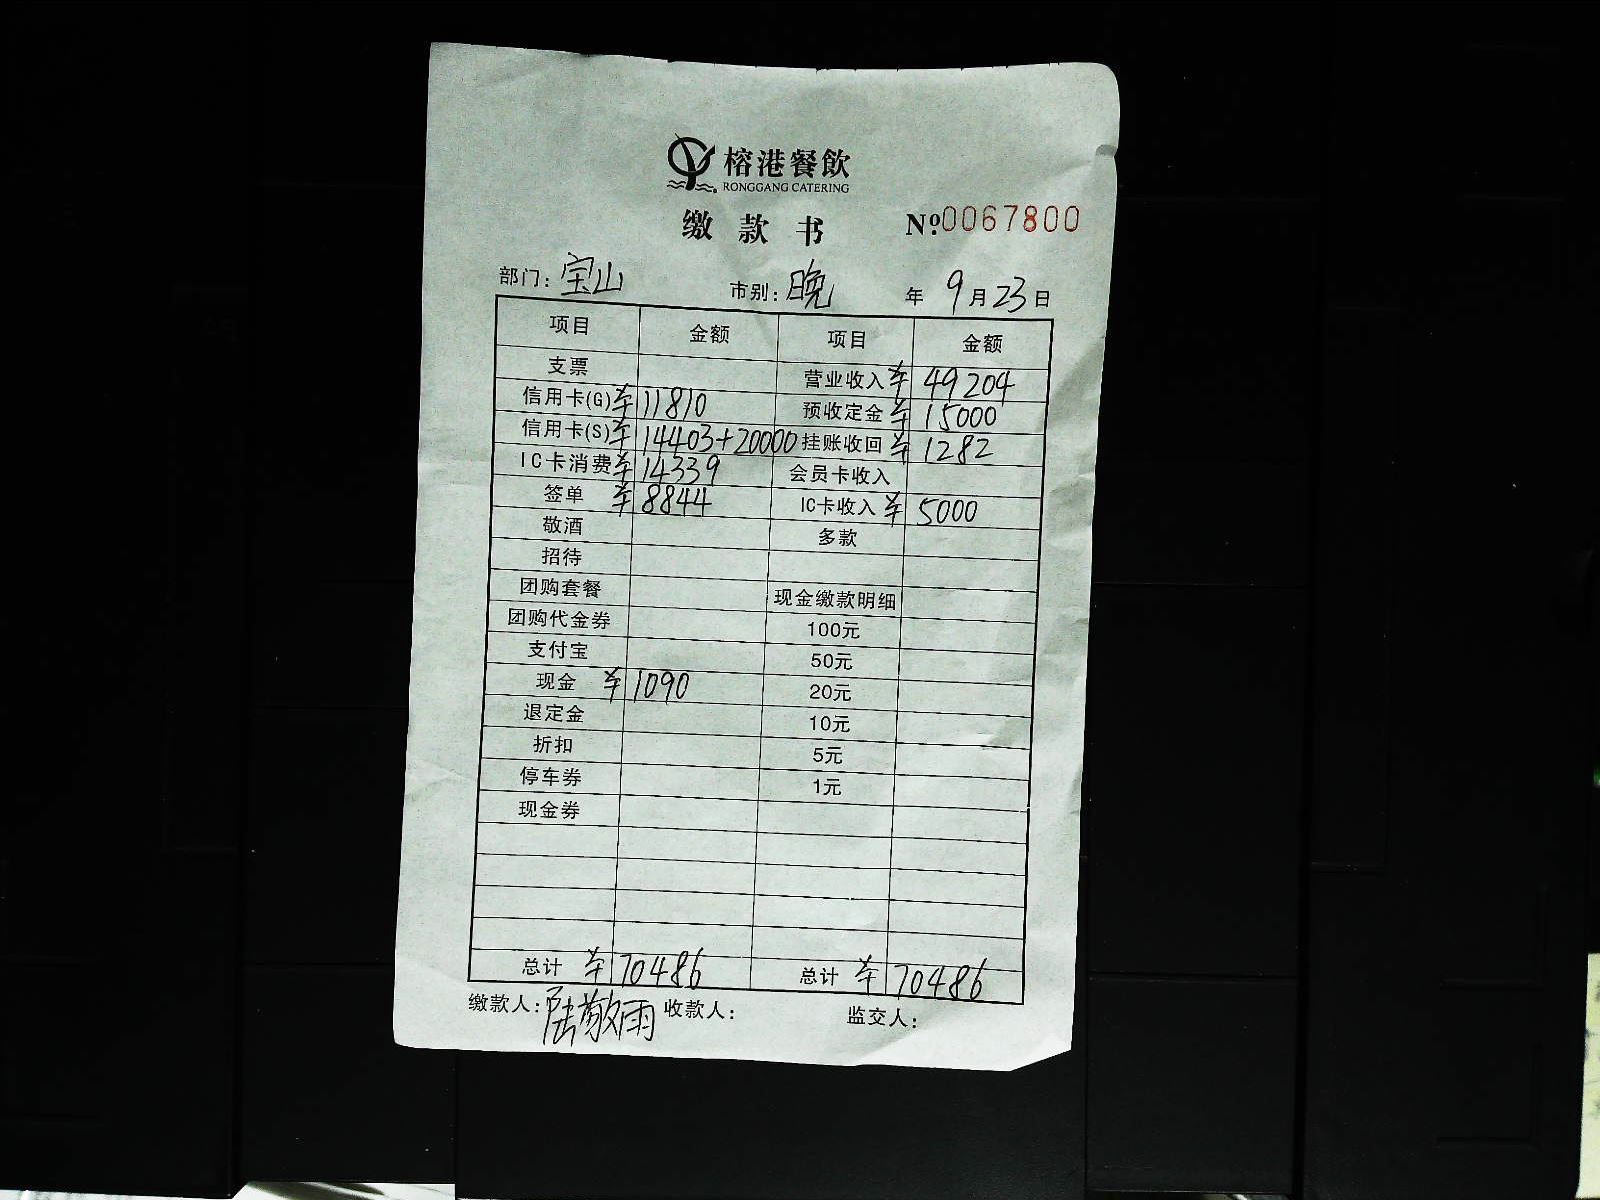 榕港餐飲
RONGGANG CATERING
缴款书 №0067800
部门：宝山 市别：晚 年 9月23日
项目 金额 项目 金额
支票 营业收入 ¥49204
信用卡(G) ¥11810 预收定金 ¥15000
信用卡(S) ¥14403+20000 挂账收回 ¥1282
IC卡消费 ¥14339 会员卡收入
签单 ¥8844 IC卡收入 ¥5000
敬酒 多款
招待
团购套餐 现金缴款明细
团购代金券 100元
支付宝 50元
现金 ¥1090 20元
退定金 10元
折扣 5元
停车券 1元
现金券
总计 ¥70486 总计 ¥70486
缴款人：陆敬雨 收款人： 监交人：